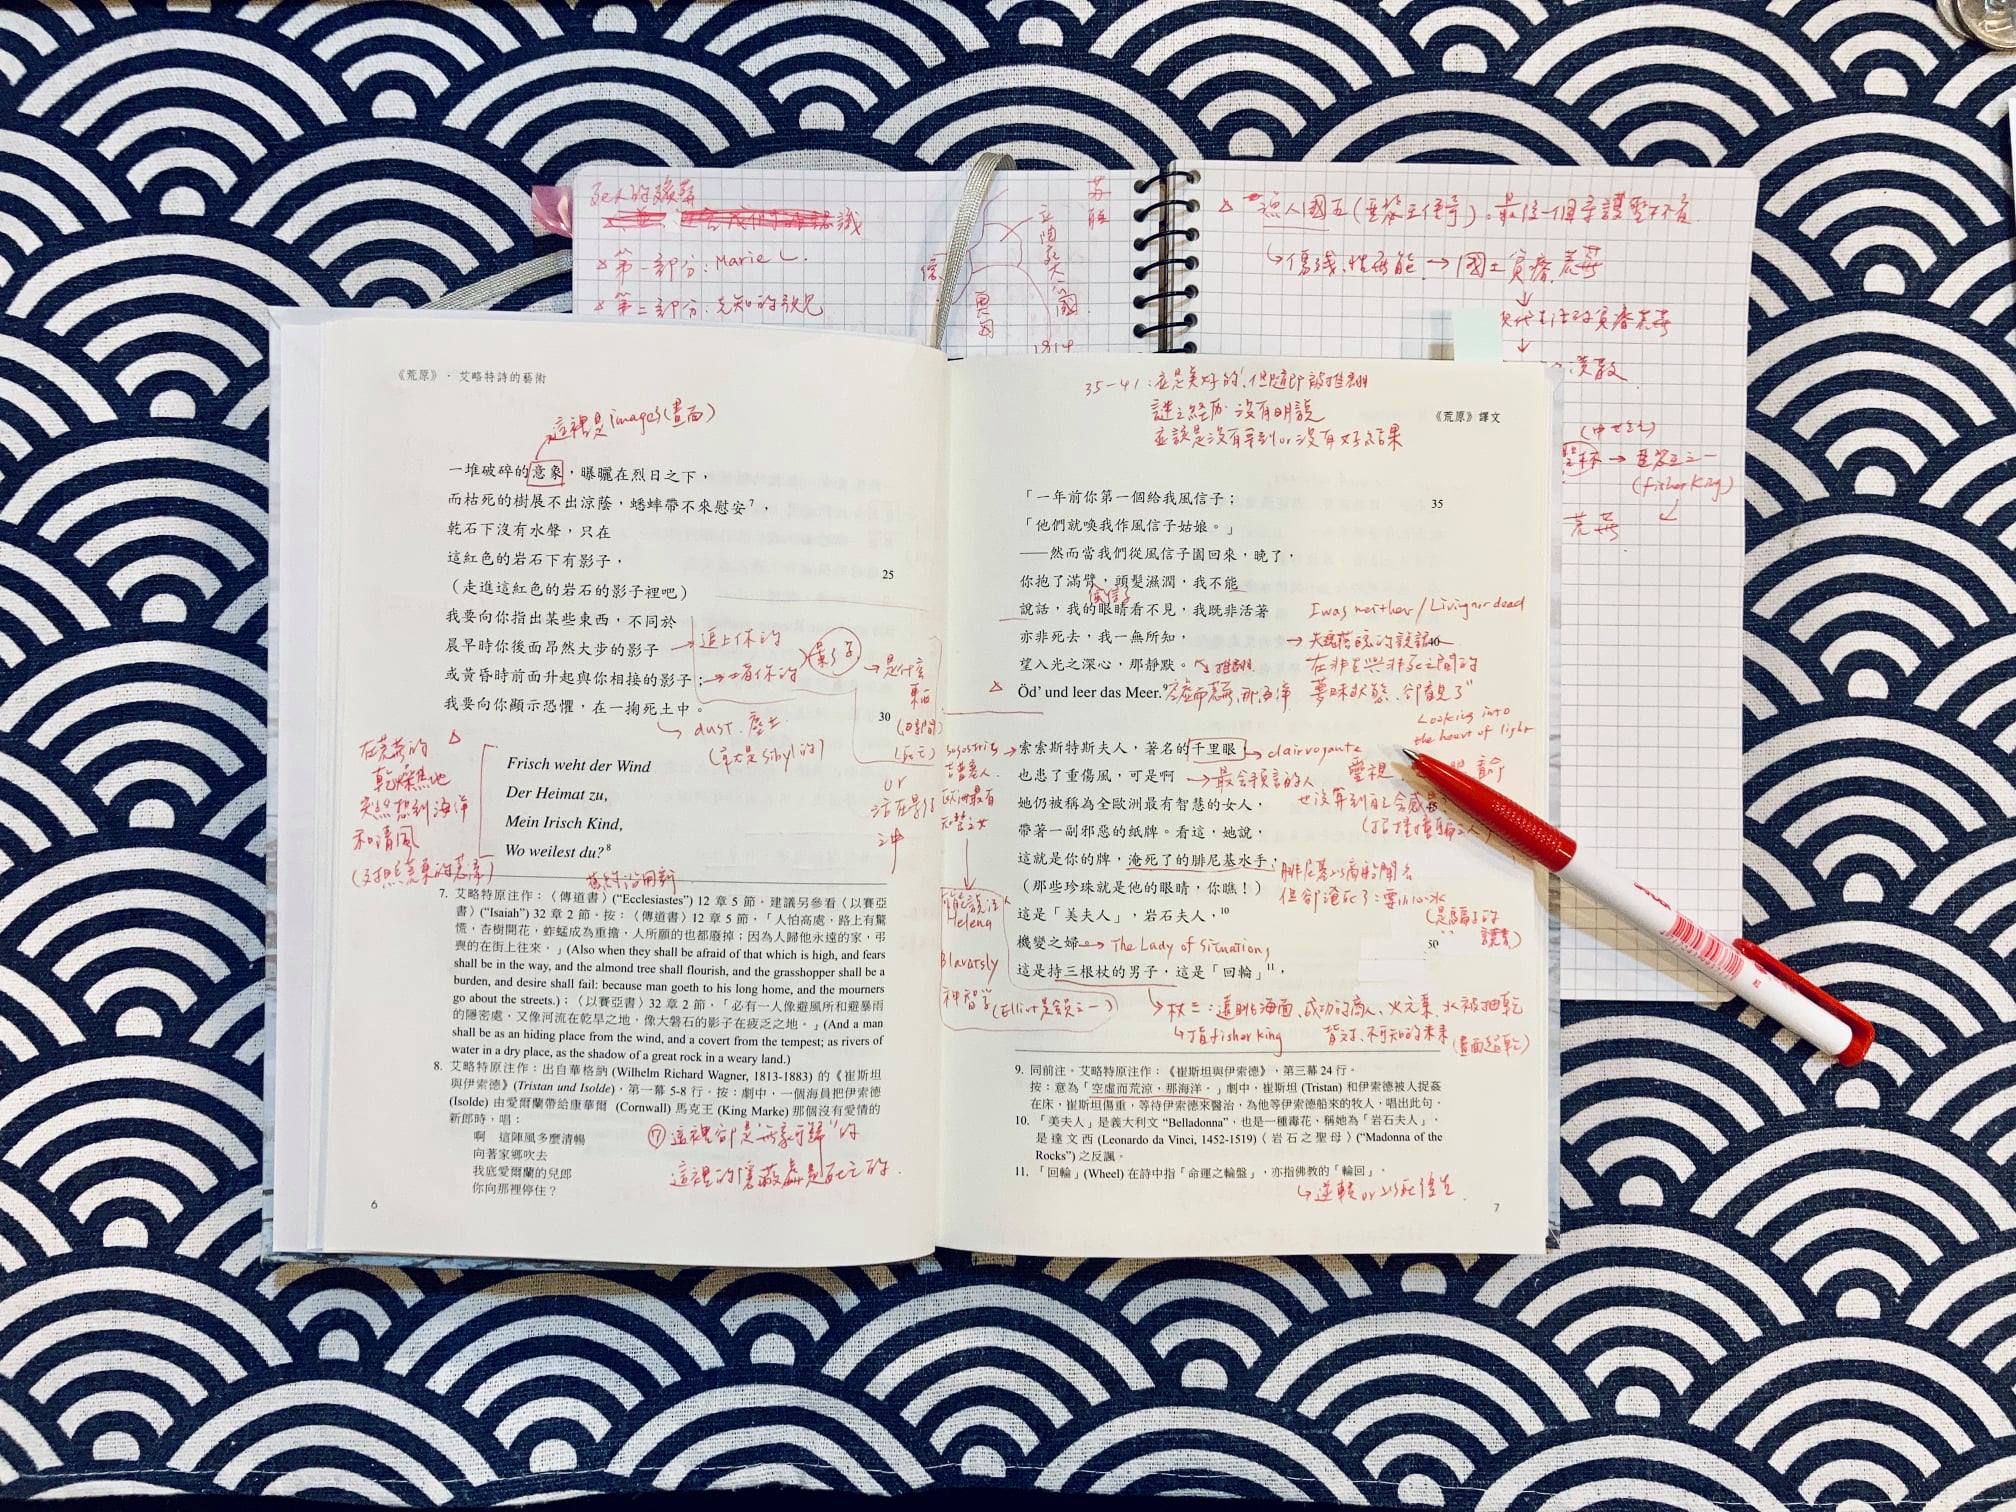 死人的殯葬
識
△ 第一部分：Marie L.
△ 第二部分：先知的狀況
蘇
勇
1914
△ 漁人國王
↳ 傷殘、性無能 → 國土貧瘠荒蕪
↓
貧瘠荒蕪
↓
潰散
→
(fisher King)
↙
荒蕪
《荒原》・艾略特詩的藝術
這裡是images(畫面)
一堆破碎的意象，曝曬在烈日之下，
而枯死的樹展不出涼蔭，蟋蟀帶不來慰安⁷，
乾石下沒有水聲，只在
這紅色的岩石下有影子，
25
（走進這紅色的岩石的影子裡吧）
我要向你指出某些東西，不同於
晨早時你後面昂然大步的影子
→ 追上你的
或黃昏時前面升起與你相接的影子；
影子
→ 是什麼
東西
我要向你顯示恐懼，在一掬死土中。
30
↳ dust. 塵土
or
活在影子
中
在荒蕪的
乾燥焦地
突然想到海洋
和清風
△
Frisch weht der Wind
Der Heimat zu,
Mein Irisch Kind,
Wo weilest du?⁸
7. 艾略特原注作：〈傳道書〉(“Ecclesiastes”) 12 章 5 節。建議另參看〈以賽亞
書〉(“Isaiah”) 32 章 2 節。按：〈傳道書〉12 章 5 節，「人怕高處，路上有驚
慌，杏樹開花，蚱蜢成為重擔，人所願的也都廢掉；因為人歸他永遠的家，弔
喪的在街上往來。」(Also when they shall be afraid of that which is high, and fears
shall be in the way, and the almond tree shall flourish, and the grasshopper shall be a
burden, and desire shall fail: because man goeth to his long home, and the mourners
go about the streets.)；〈以賽亞書〉32 章 2 節，「必有一人像避風所和避暴雨
的隱密處，又像河流在乾旱之地，像大磐石的影子在疲乏之地。」(And a man
shall be as an hiding place from the wind, and a covert from the tempest; as rivers of
water in a dry place, as the shadow of a great rock in a weary land.)
8. 艾略特原注作：出自華格納 (Wilhelm Richard Wagner, 1813-1883) 的《崔斯坦
與伊索德》(Tristan und Isolde)，第一幕 5-8 行。按：劇中，一個海員把伊索德
(Isolde) 由愛爾蘭帶給康華爾 (Cornwall) 馬克王 (King Marke) 那個沒有愛情的
新郎時，唱：
啊　這陣風多麼清暢
向著家鄉吹去
我底愛爾蘭的兒郎
你向那裡停住？
⑦ 這裡卻是“無家可歸”的
這裡的隱蔽處是死亡的．
6
35-41：應是美好的，但隨即被推翻
謎之經历 沒有明說
應該是沒有等到or沒有好結果
《荒原》譯文
「一年前你第一個給我風信子；
35
「他們就喚我作風信子姑娘。」
——然而當我們從風信子園回來，晚了，
你抱了滿臂，頭髮濕潤，我不能
說話，我的眼睛看不見，我既非活著
I was neither / Living nor dead
亦非死去，我一無所知，
→ 失魂落魄的
40
望入光之深心，那靜默。
↖ 推翻
在非生與非死之間的
△ Öd’ und leer das Meer.⁹
空虛而荒蕪，那海洋
夢昧狀態，卻看見了
Looking into
the heart of light
Sosostris
古普賽人
歐洲最有
智慧之女
索索斯特斯夫人，著名的千里眼，
→ clairvoyante
也患了重傷風，可是啊
→ 最會預言的人
她仍被稱為全歐洲最有智慧的女人，
也沒算到自己會感冒
帶著一副邪惡的紙牌。看這，她說，
這就是你的牌，淹死了的腓尼基水手，
腓尼基以商船聞名
（那些珍珠就是他的眼睛，你瞧！）
但卻淹死了：要小心水
這是「美夫人」，岩石夫人，¹⁰
機變之婦
→ The Lady of Situations
50
這是持三根杖的男子，這是「回輪」¹¹，
Helena
Blavatsky
神智學
(Elliot是會員之一)
↳ 杖三：遠眺海面、成功的商人、火元素、水被抽乾
↳ 指fisher King
背对、不可知的未来
(畫面超乾)
9. 同前注。艾略特原注作：《崔斯坦與伊索德》，第三幕 24 行。
按：意為「空虛而荒涼，那海洋。」劇中，崔斯坦 (Tristan) 和伊索德被人捉姦
在床，崔斯坦傷重，等待伊索德來醫治，為他等伊索德船來的牧人，唱出此句。
10. 「美夫人」是義大利文 “Belladonna”，也是一種毒花，稱她為「岩石夫人」，
是達文西 (Leonardo da Vinci, 1452-1519)〈岩石之聖母〉(“Madonna of the
Rocks”) 之反諷。
11. 「回輪」(Wheel) 在詩中指「命運之輪盤」，亦指佛教的「輪回」。
↳ 逆轉 or 以死復生
7